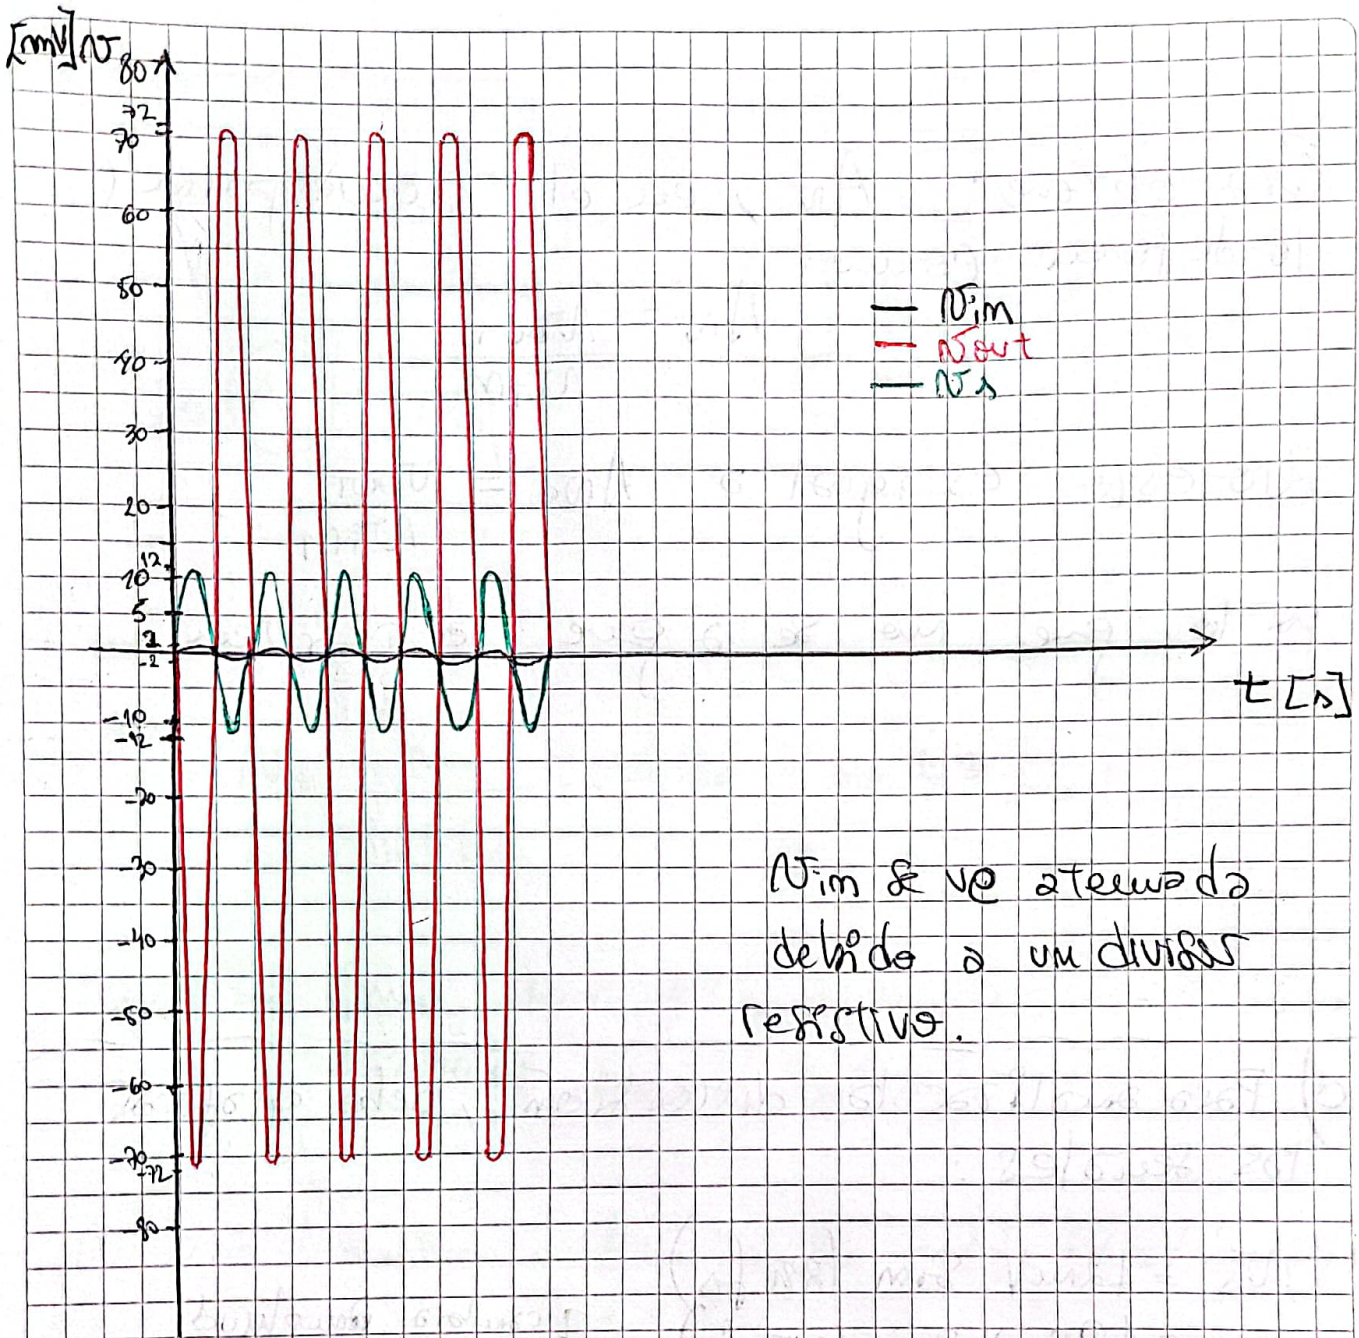 [mV] v
80
72
70
60
50
40
30
20
12
10
5
1
-1
-10
-12
-20
-30
-40
-50
-60
-70
-72
-80
vin
vout
vs
t [s]
vin se ve atenuada
debido a un divisor
resistivo.
c) Para
los señales